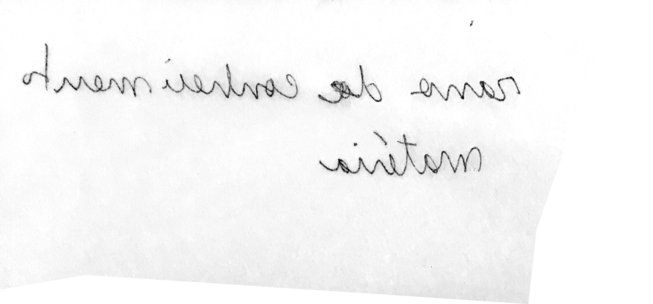 ramo de conhecimento
matéria